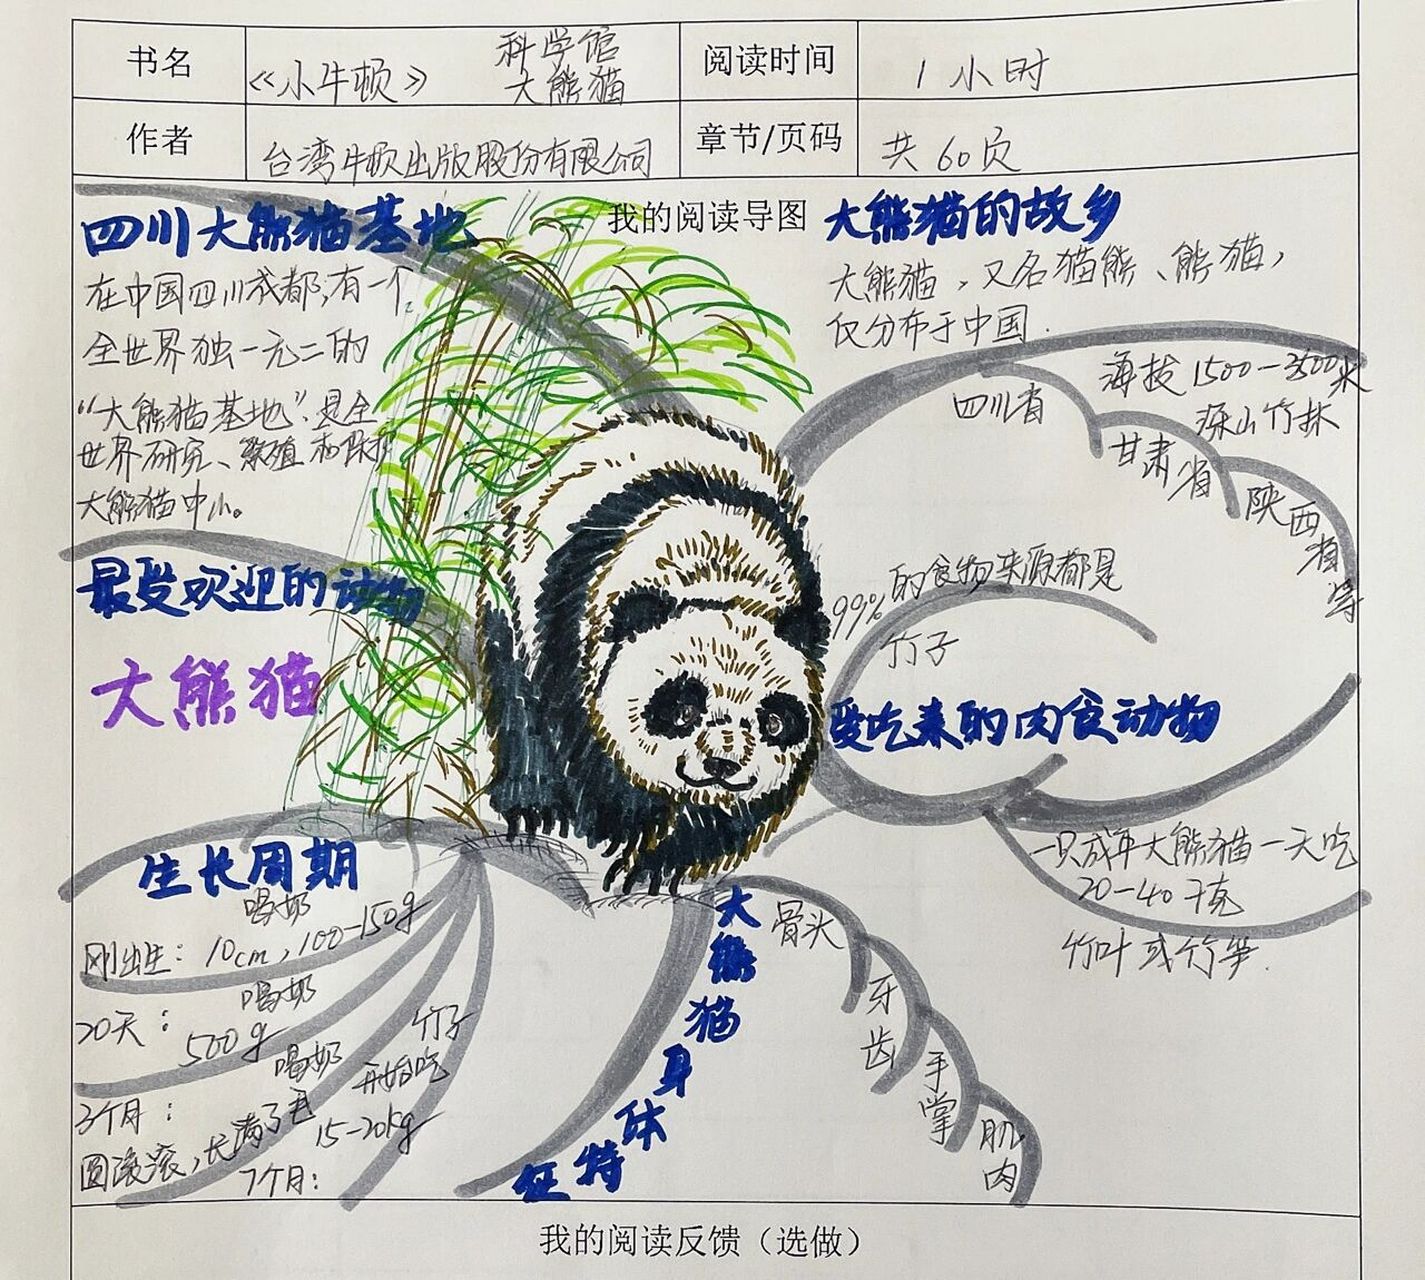 书名
《小牛顿》 科学馆
大熊猫
阅读时间
1小时
作者
台湾牛顿出版股份有限公司
章节/页码
共60页
我的阅读导图
四川大熊猫基地
在中国四川成都,有一个
全世界独一无二的
“大熊猫基地”,是全
世界研究、繁殖和保护
大熊猫中心。
最受欢迎的动物
大熊猫
大熊猫的故乡
大熊猫,又名猫熊、熊猫,
仅分布于中国.
海拔1500-3500米
深山竹林
四川省
甘肃省
陕西省等
99%的食物来源都是
竹子
爱吃素的肉食动物
一只成年大熊猫一天吃
20-40千克
竹叶或竹笋.
生长周期
喝奶
刚出生:10cm,100-150g
喝奶
20天:500g
喝奶
3个月:
圆滚滚,长满了毛
竹子
开始吃
15-20kg
7个月:
大熊猫身体特征
骨头
牙齿
手掌
肌肉
我的阅读反馈(选做)